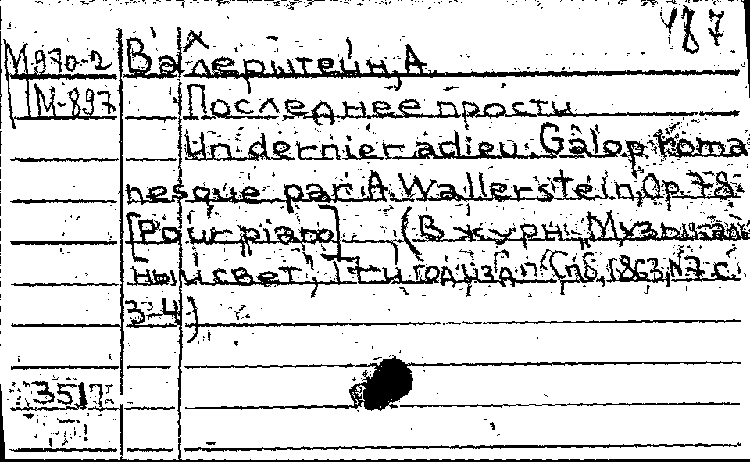 487
М970-2 Валерштейн, А.
М-897 Последнее прости
Un dernier adieu. Galop roma
nesque par A. Wallerstein, Op. 78.
[Pour piano] (В журн. „Музыкаль
ный свет", 17-й год изд. Спб, 1863, №7 с.
3-4)
3517